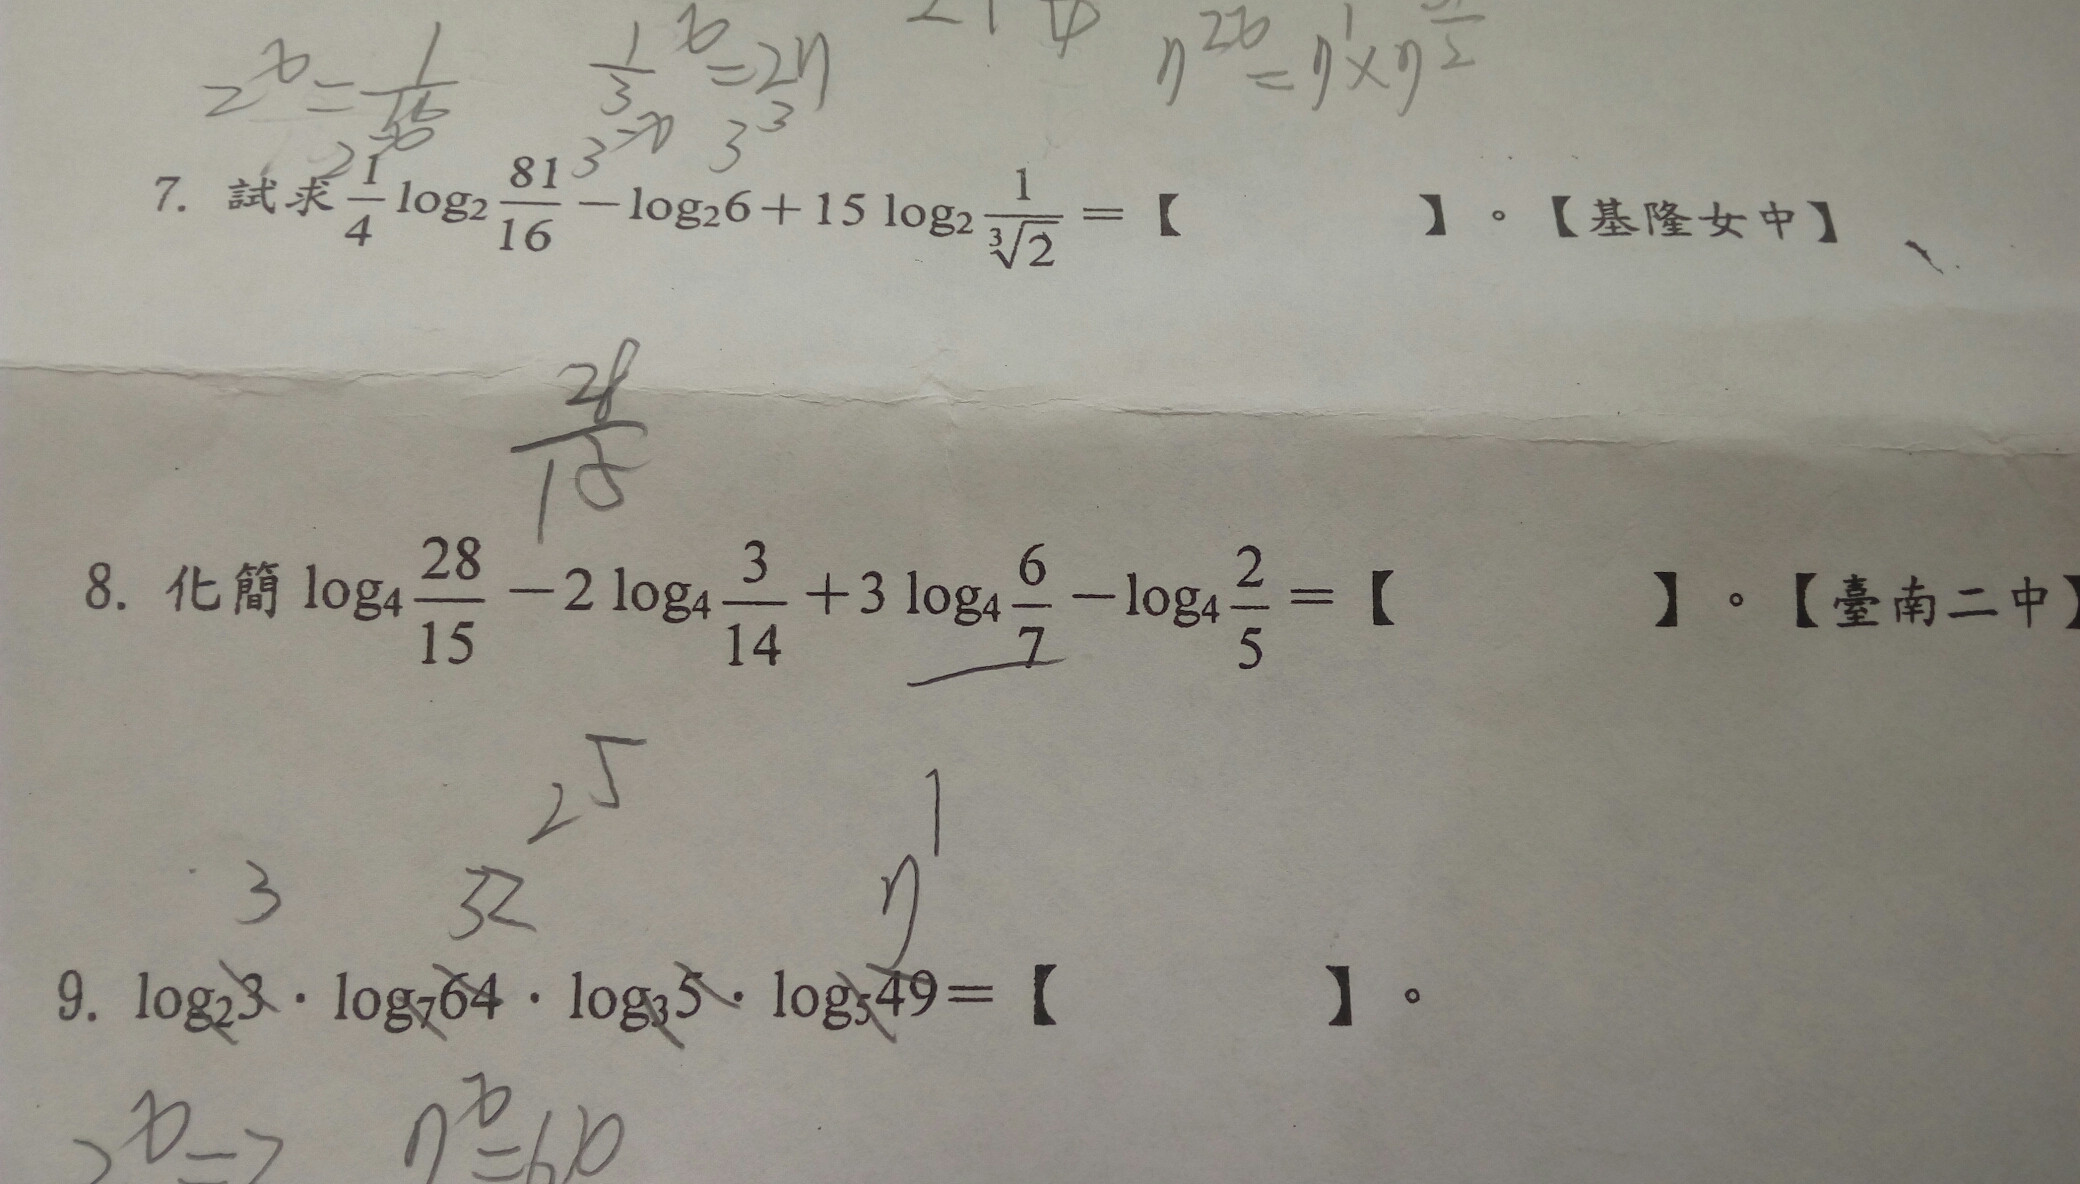 2^x = 1/16    1/3^x = 27    7^2x = 7^1 × 7
3^-x 3^3
7. 試求 1/4 log₂ 81/16 － log₂6 ＋ 15 log₂ 1/∛2 ＝【　　　】。【基隆女中】
28/15
8. 化簡 log₄ 28/15 － 2 log₄ 3/14 ＋ 3 log₄ 6/7 － log₄ 2/5 ＝【　　　】。【臺南二中】
2^5
3    32    7^1
9. log₂3 · log₇64 · log₃5 · log₅49 ＝【　　　】。
7^x =